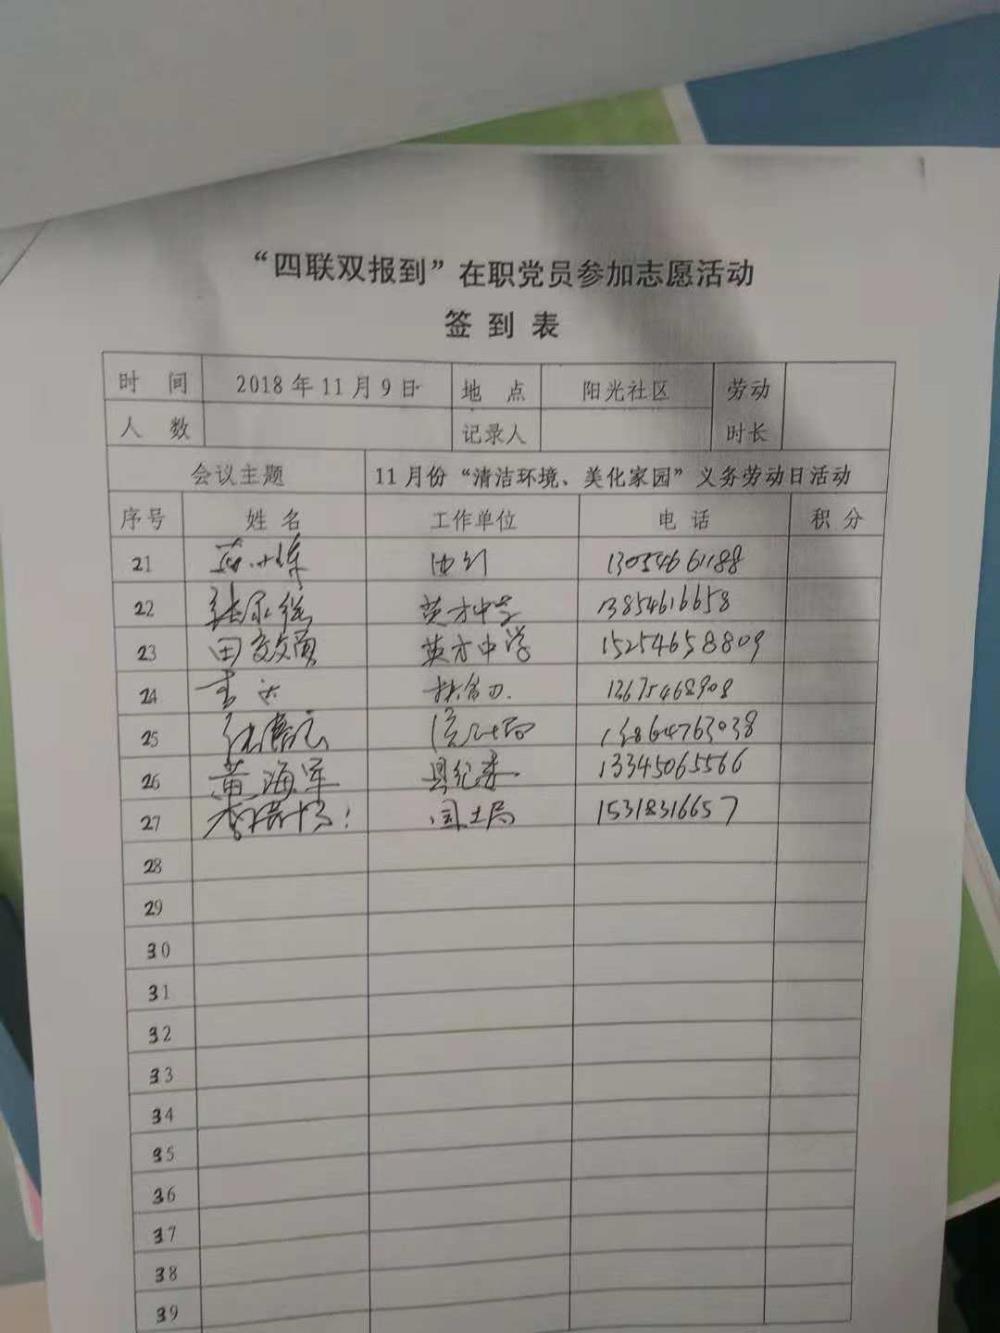 “四联双报到”在职党员参加志愿活动
签 到 表
时 间 2018年11月9日 地 点 阳光社区 劳动时长
人 数 记录人
会议主题 11月份“清洁环境、美化家园”义务劳动日活动
序号 姓 名 工作单位 电 话 积 分
21 13054661188
22 英才中学 13854616658
23 田效勇 英才中学 15254658809
24 扶贫办 13675468908
25 13864763038
26 黄海军 县纪委 13345065566
27 国土局 15318316657
28
29
30
31
32
33
34
35
36
37
38
39